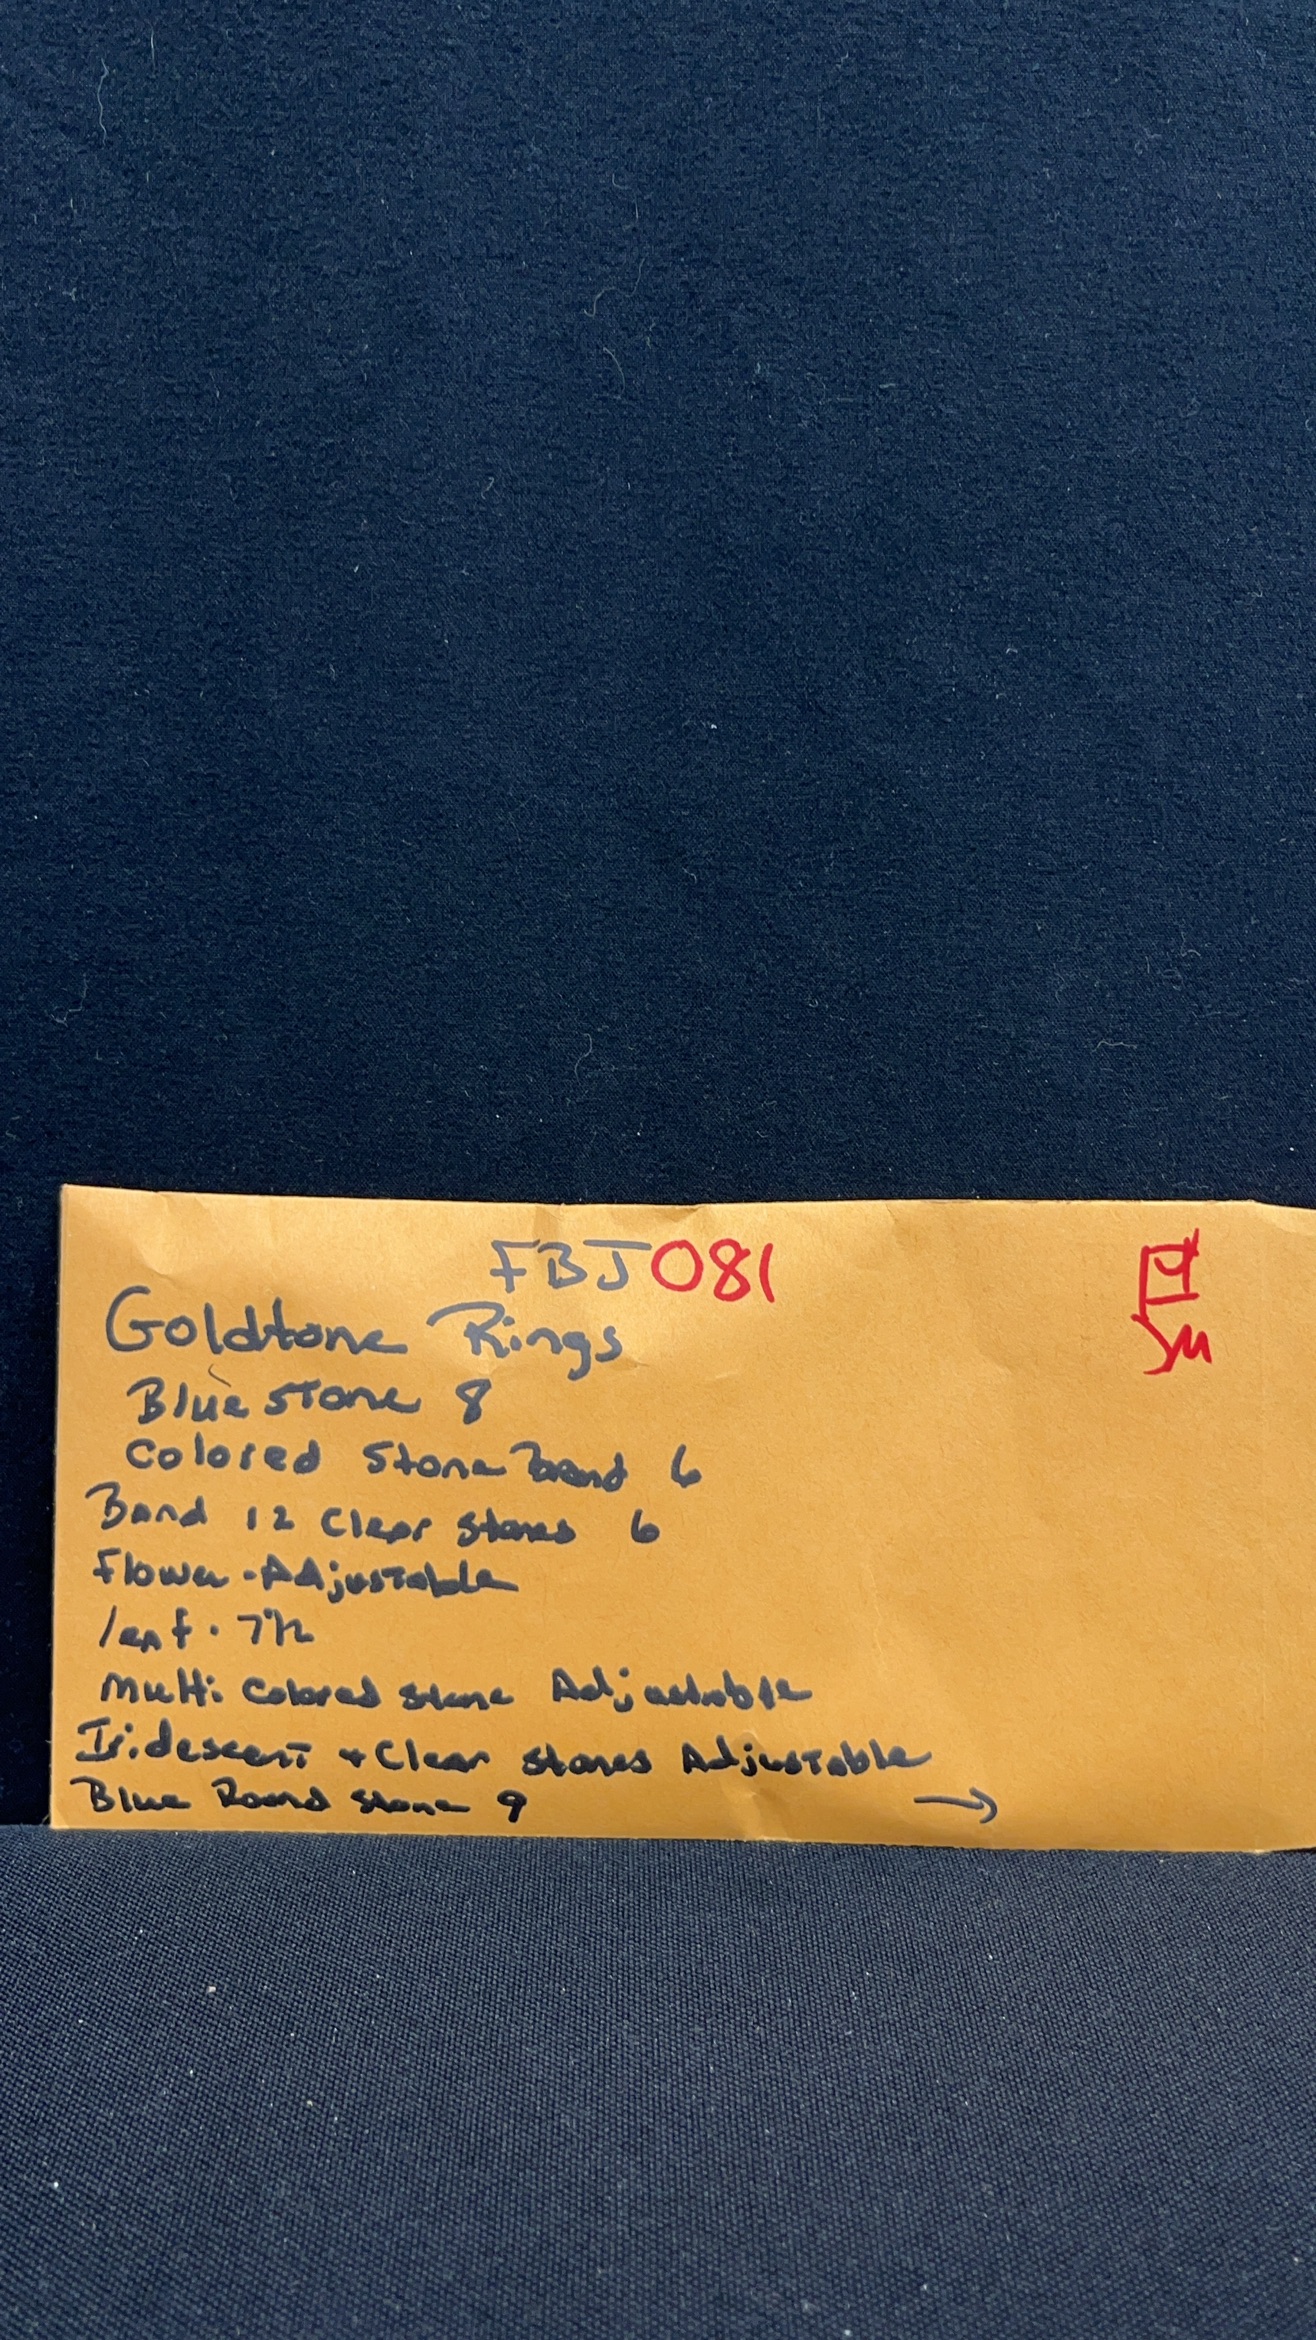 FBJ081
Goldtone Rings
Blue stone 8
Colored Stone Band 6
Band 12 Clear Stones 6
Flower - Adjustable
leaf - 7 1/2
Multi Colored Stone Adjustable
Iridescent + Clear Stones Adjustable
Blue Round Stone 9 →